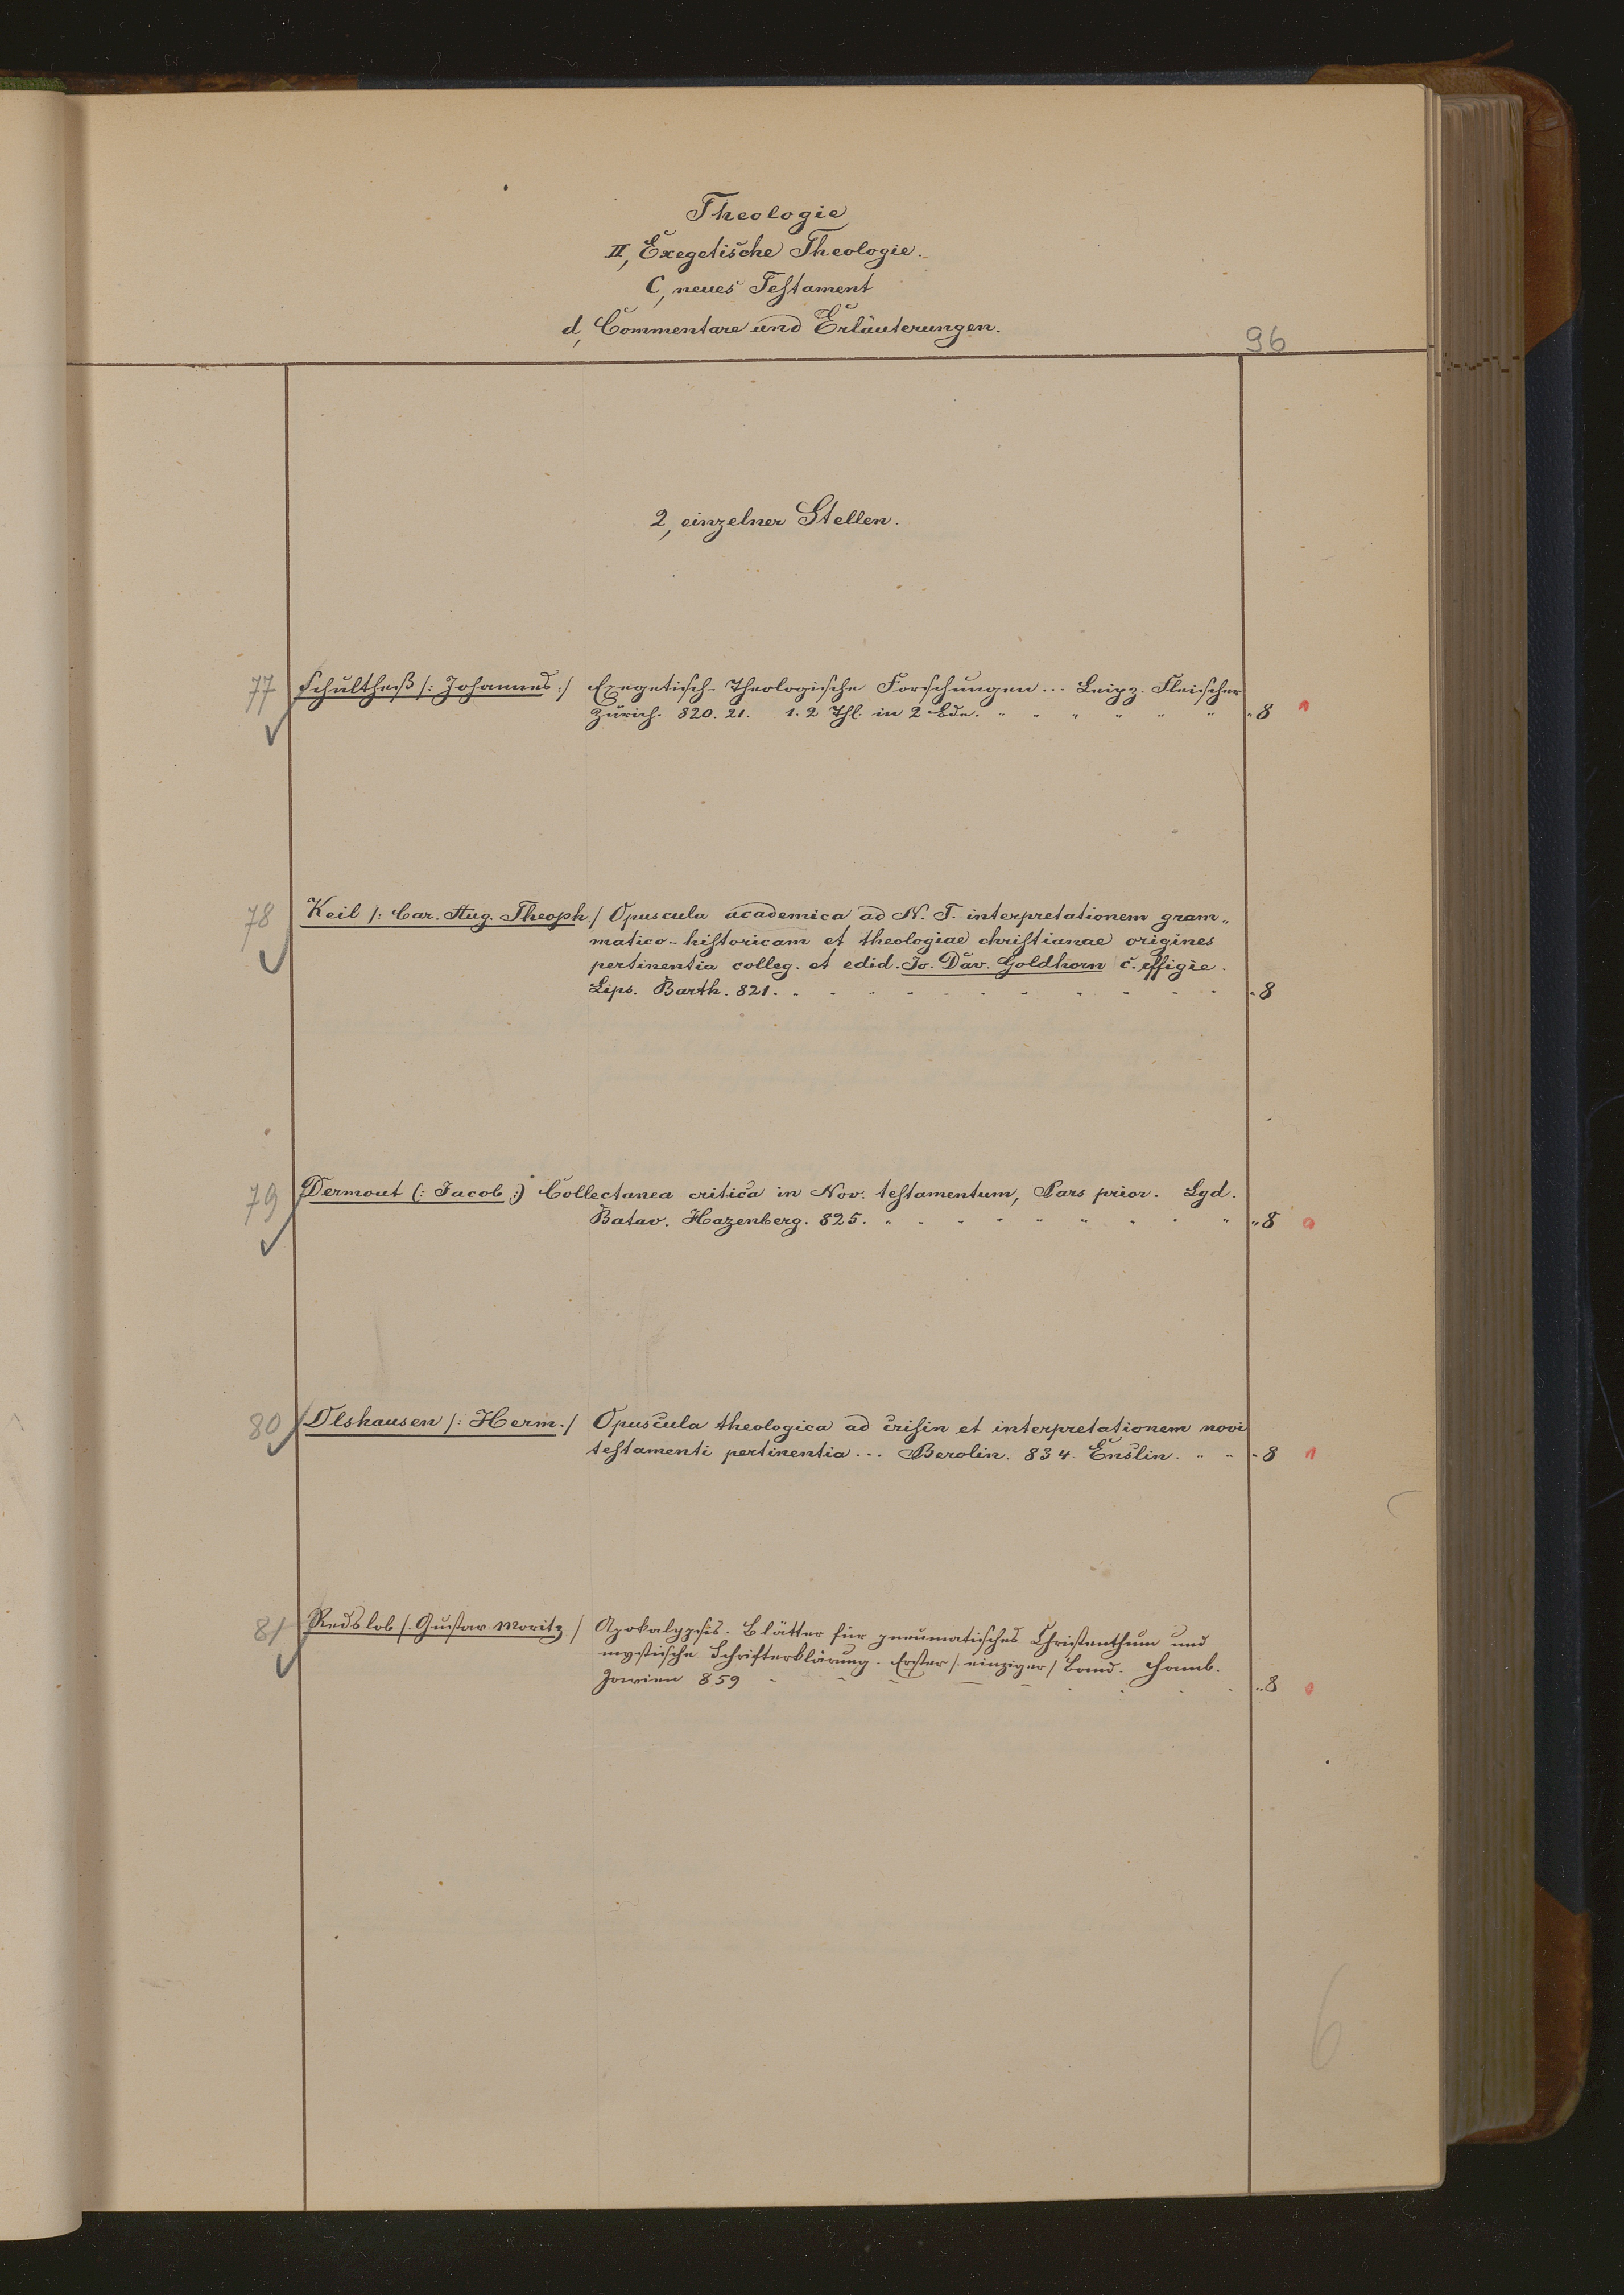 Theologie
II, Exegetische Theologie.
C, neues Testament
d, Commentare und Erläuterungen.
96
2, einzelner Stellen.
77 Schultheß /: Johannes :/ Exegetisch-Theologische Forschungen... Leipz. Fleischer
Zürich. 820. 21. 1. 2 Thl. in 2 Bde. " " " " " " " 8
78 Keil /: Car. Aug. Theoph. / Opuscula academica ad N. T. interpretationem gram„
matico-historicam et theologiae christianae origines
pertinentia colleg. et edid. Jo. Dav. Goldhorn c. effigie.
Lips. Barth. 821. " 8
79 Dermout (: Jacob :) Collectanea critica in Nov. testamentum, Pars prior. Lgd.
Batav. Hazenberg. 825. " " " " " " " " " " 8
80 Olshausen /: Herm. / Opuscula theologica ad crisin et interpretationem novi
testamenti pertinentia... Berolin. 834. Enslin. " " " 8
81 Redslob /. Gustav Moritz / Apokalypsis. Blätter für pneumatisches Christenthum und
mystische Schrifterklärung. Erster /. einziger / Band. Hamb.
Jowien 859 " 8
6